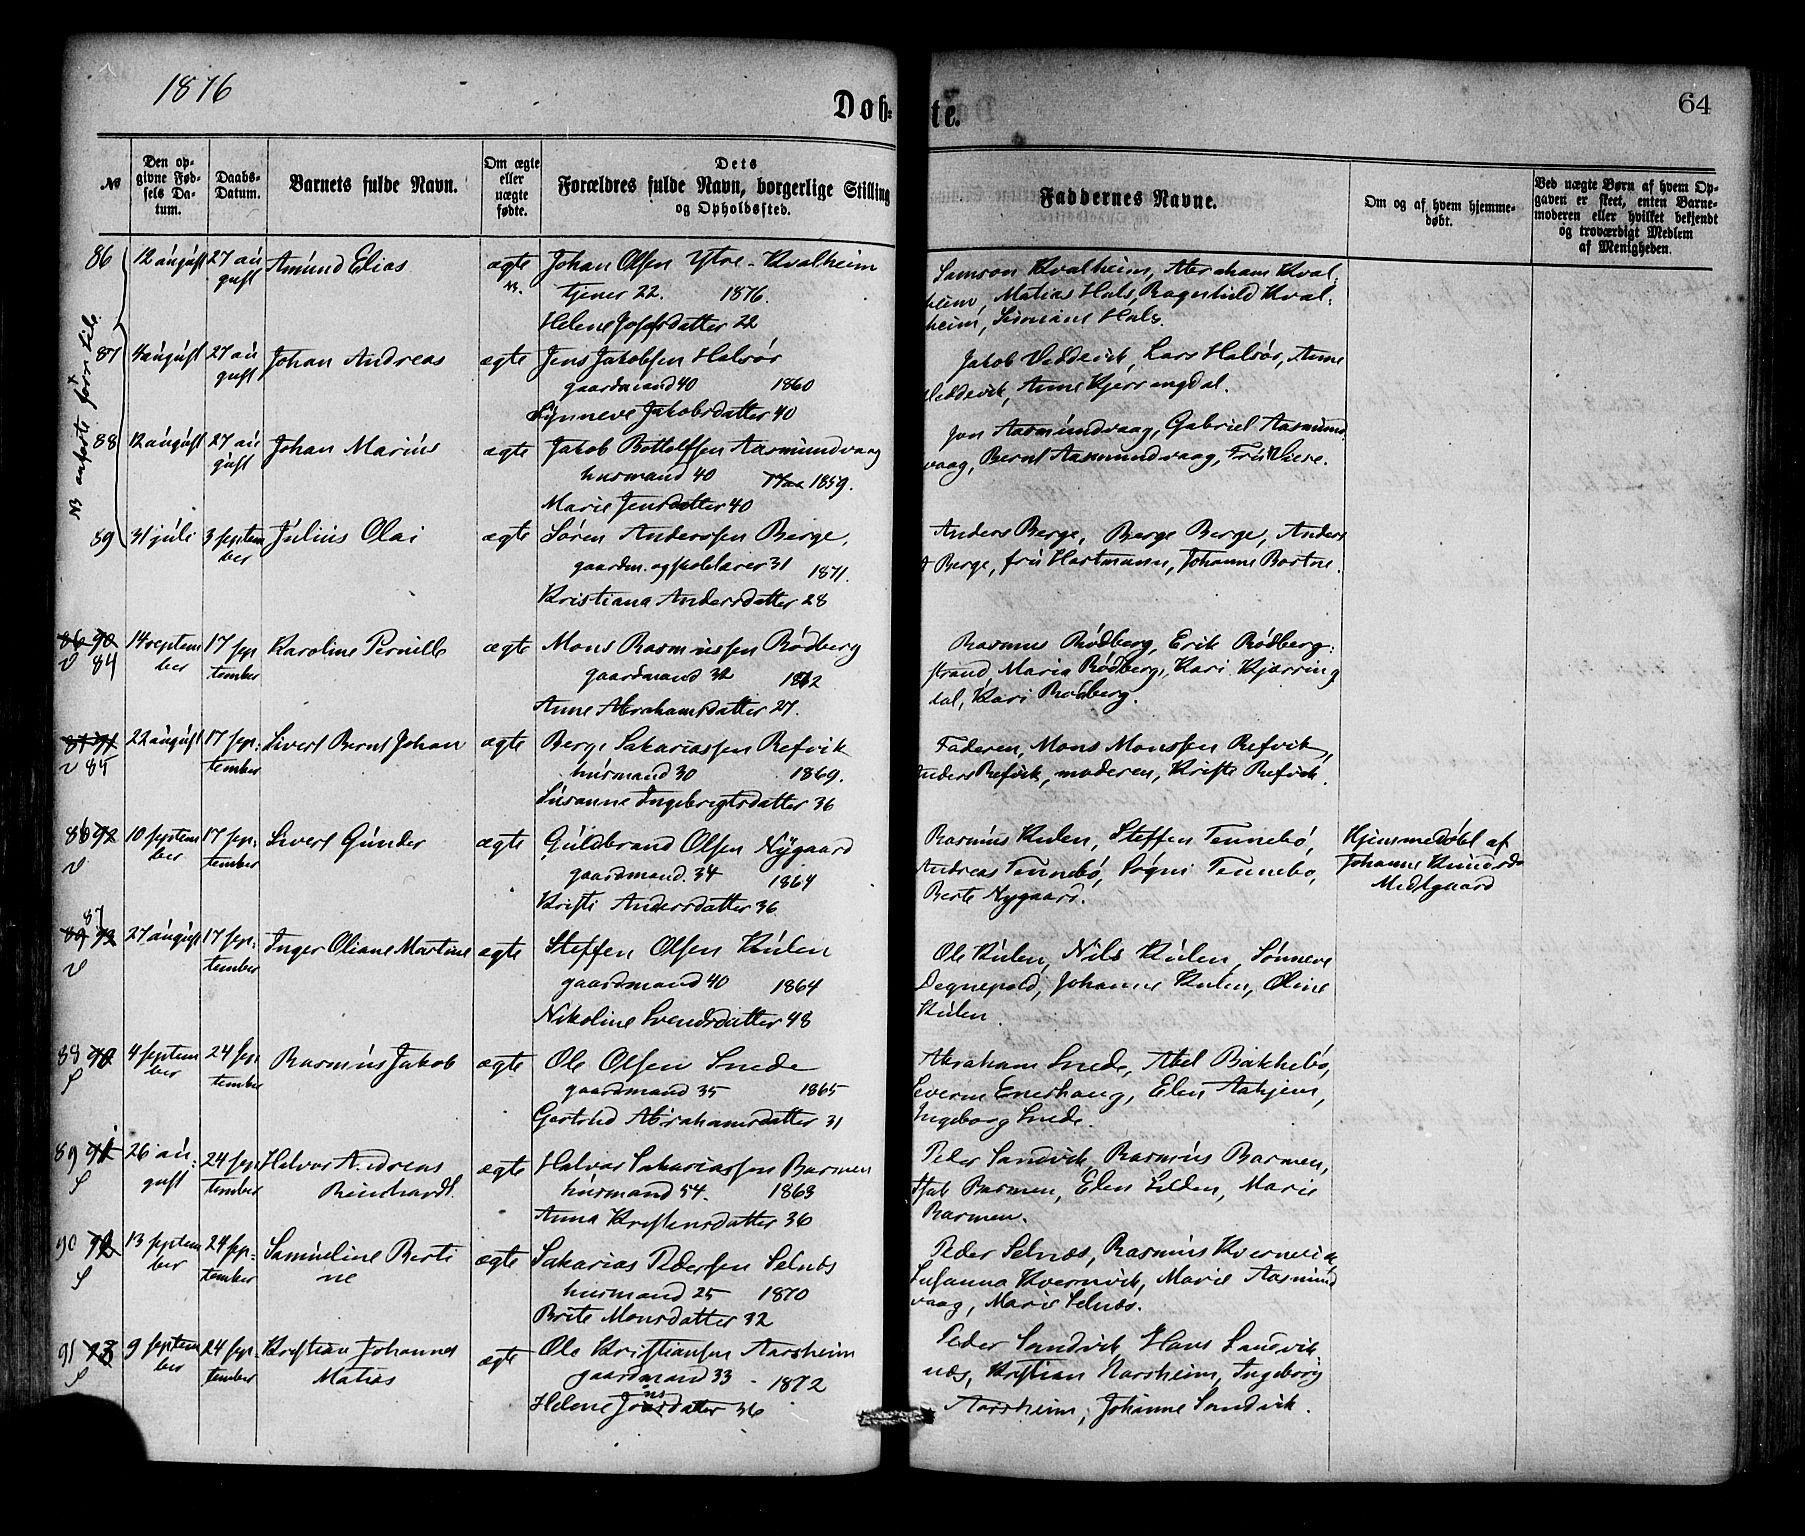 1876
Døb-
te.
64
No
Den op-
givne Fød-
sels Da-
tum.
Daabs-
Datum.
Barnets fulde Navn.
Om ægte
eller
uægte
fødte.
Dets
Forældres fulde Navn, borgerlige Stilling
og Opholdssted.
Faddernes Navne.
Om og af hvem hjemme-
døbt.
Ved uægte Børn af hvem Op-
gaven er skeet, enten Barne-
moderen eller hvilket bekjendt
og troværdigt Medlem
af Menigheden.
NB anførte før
86 12 august 27 au
gust Amund Elias ægte Johan Olsen Ytre-Kvalheim
tjener 22. 1876.
Helene Josefsdatter 22
Samson Kvalheim, Abraham Kval-
heim, Matias Hals, Ragnhild Kval-
heim, Simiane Hals.
87 4 august 27 au
gust Johan Andreas ægte Jens Jakobsen Halsør
gaardmand 40 1860
Synneve Jakobsdatter 40
Jakob Veddevik, Lars Halsør, Anne
Veddevik, Anne Kjerringdal.
88 12 august 27 au
gust Johan Marius ægte Jakob Bottolfsen Aasmundvaag
husmand 40 1859.
Marie Jensdatter 40
Jon Aasmundvaag, Gabriel Aasmund
vaag, Bernt Aasmundvaag, Fru Wiese.
89 31 juli 3 septem
ber Julius Olai ægte Søren Anderssen Berge,
gaardm. og skolelærer 31 1871.
Kristiana Andersdatter 28
Anders Berge, Berge Berge, Anders
A Berge, fru Hartmann, Johanne Bortne.
86 90
V 84 14 septem
ber 17 sep
tember Karoline Pernille ægte Mons Rasmussen Rødberg
gaardmand 32 1872
Anne Abrahamsdatter 27.
Rasmus Rødberg, Erik Rødberg-
strand, Maria Rødberg, Kari Kjerring
dal, Kari Rødberg.
87 91
V 85 22 august 17 sep-
tember Sivert Bernt Johan ægte Berge Sakariassen Refvik
husmand 30 1869.
Susanne Ingebrigtsdatter 36
Faderen, Mons Monssen Refvik,
Anders Refvik, moderen, Kriste Refvik.
86 92
V 10 septem
ber 17 sep-
tember Sivert Gunder ægte Guldbrand Olsen Nygaard
gaardmand. 34 1864
Kristi Andersdatter 36
Rasmus Kulen, Steffen Tennebø,
Andreas Tennebø, Søgni Tennebø,
Berte Nygaard.
Hjemmedøbt af
Johanne Knudsd
Medlgaard
87
89 93
V 27 august 17 sep-
tember Inger Oliane Martine ægte Steffen Olsen Kulen
gaardmand 40 1864
Nikoline Svendsdatter 48
Ole Kulen, Nils Kulen, Sønneve
Degnepold, Johanne Kulen, Oline
Kulen.
88 90
S 4 septem
ber 24 sep
tember Rasmus Jakob ægte Ole Olsen Snede
gaardmand 35 1865
Gertrud Abrahamsdatter 31
Abraham Snede, Abel Bakkebø,
Severin Enerhaug, Elen Aahjem,
Ingeborg Snede.
89 91
S 26 au-
gust 24 sep
tember Halvor Andreas
Reinhardt ægte Halvar Sakariassen Barmen
husmand 54. 1863
Anna Kristensdatter 36
Peder Sandvik, Rasmus Barmen,
Barmen, Elen Lilden, Marie
Barmen.
90 92
S 13 septem
ber 24 sep-
tember Samueline Berti
ne ægte Sakarias Pedersen Selnæs
husmand 25 1870
Brite Monsdatter 32
Peder Selnæs, Rasmus Kvernevik,
Susanna Kvernvik, Marie Aasmund
vaag, Marie Selnæs.
91 93
S 9 septem
ber 24 sep-
tember Kristian Johannes
Matias ægte Ole Kristiansen Aarsheim
gaardmand 33 1872
Helene Jonsdatter 36
Peder Sandvik, Hans Sandvik
næs, Kristian Aarsheim, Ingeborg
Aarsheim, Johanne Sandvik.